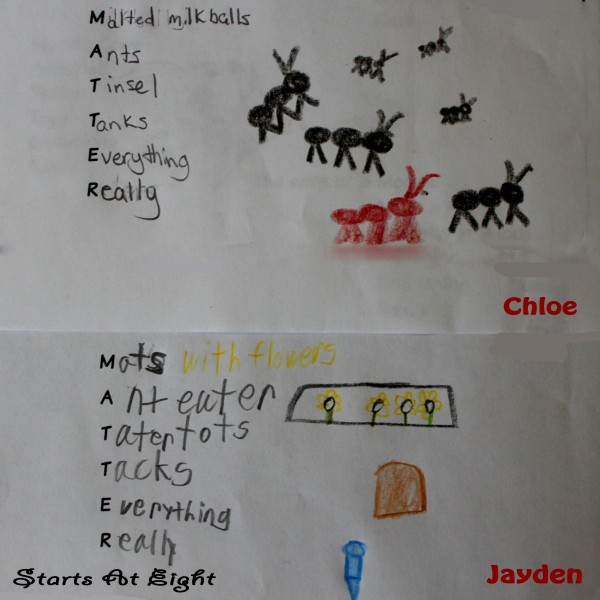 Malted milkballs
Ants
Tinsel
Tanks
Everything
Really
Chloe
Mats with flowers
Ant eater
Tatertots
Tacks
Everything
Really
Starts At Eight
Jayden